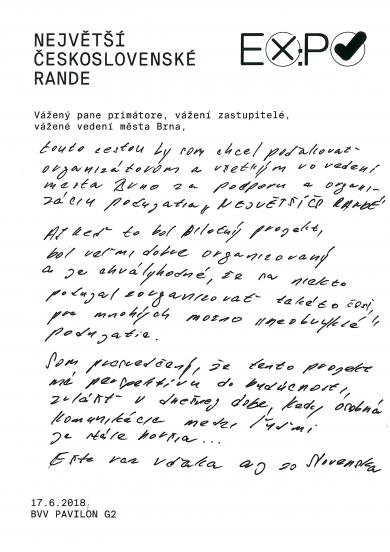 NEJVĚTŠÍ
ČESKOSLOVENSKÉ
RANDE
EXPO
Vážený pane primátore, vážení zastupitelé,
vážené vedení města Brna,
touto cestou by som chcel poďakovať
organizátorom a všetkým vo vedení
mesta Brno za podporu a organi-
záciu podujatia „NEJVĚTŠÍČS RANDE"
Aj keď to bol pilotný projekt,
bol veľmi dobre organizovaný
a je chvályhodné, že sa niekto
podujal zorganizovať takéto čosi,
pre mnohých možno „neobvyklé"
podujatie.
Som presvedčený, že tento projekt
má perspektívu do budúcnosti,
zvlášť v dnešnej dobe, kedy osobná
komunikácia medzi ľuďmi
je stále horšia...
Ešte raz vďaka aj zo Slovenska
17.6.2018
BVV PAVILON G2